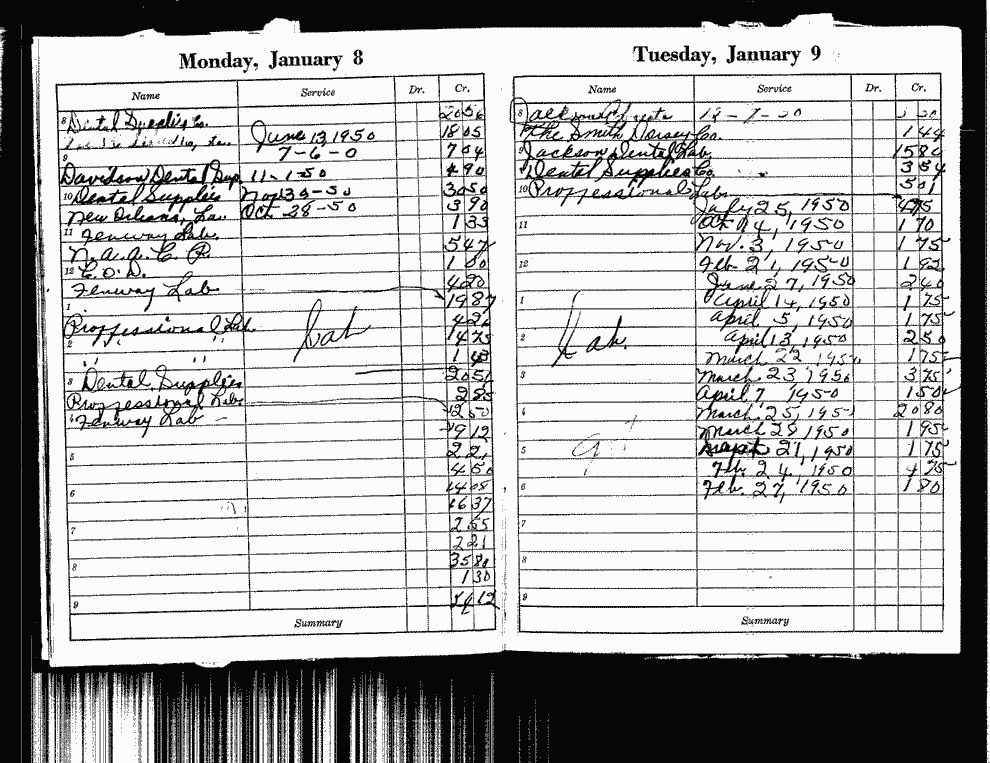 Monday, January 8
Name Service Dr. Cr.
8 Dental Supplies Co. 20 56
June 13, 1950 18 05
9 7-6-0 7 04
Davidson Dental Sup. 11-1-50 4 90
10 Dental Supplies Nov 30-50 30 50
New Orleans, La. Oct. 28-50 3 90
11 Fenway Lab. 1 33
N. A. A. C. P. 5 47
12 C. O. D. 1 00
Fenway Lab 4 20
1 19 87
Proffessional Lab. 4 26
2 " " Lab 14 75
" " 1 43
3 Dental Supplies 20 51
Proffessional Lab. 2 85
4 Fenway Lab 12 50
9 12
5 2 21
4 50
6 14 08
16 37
7 2 55
2 21
8 35 80
1 30
9 12
Summary
Tuesday, January 9
Name Service Dr. Cr.
8 12-7-50
The Smith Dorsey Co. 1 44
9 Jackson Dental Lab. 15 80
Dental Supplies Co. 3 54
10 Proffessional Lab. 5 01
July 25, 1950 4 75
11 Oct 14, 1950 1 70
Nov. 3, 1950 1 75
12 Feb. 21, 1950 1 92
June 27, 1950 2 40
1 April 14, 1950 1 75
April 5, 1950 1 75
2 Lab. April 13, 1950 2 50
March 22 1950 1 75
3 March 23, 1950 3 75
April 7 1950 1 50
4 March 25, 1950 20 80
March 28 1950 1 95
5 Sept 21, 1950 1 75
Feb. 24, 1950 4 75
6 Feb. 27, 1950 1 80
7
8
9
Summary